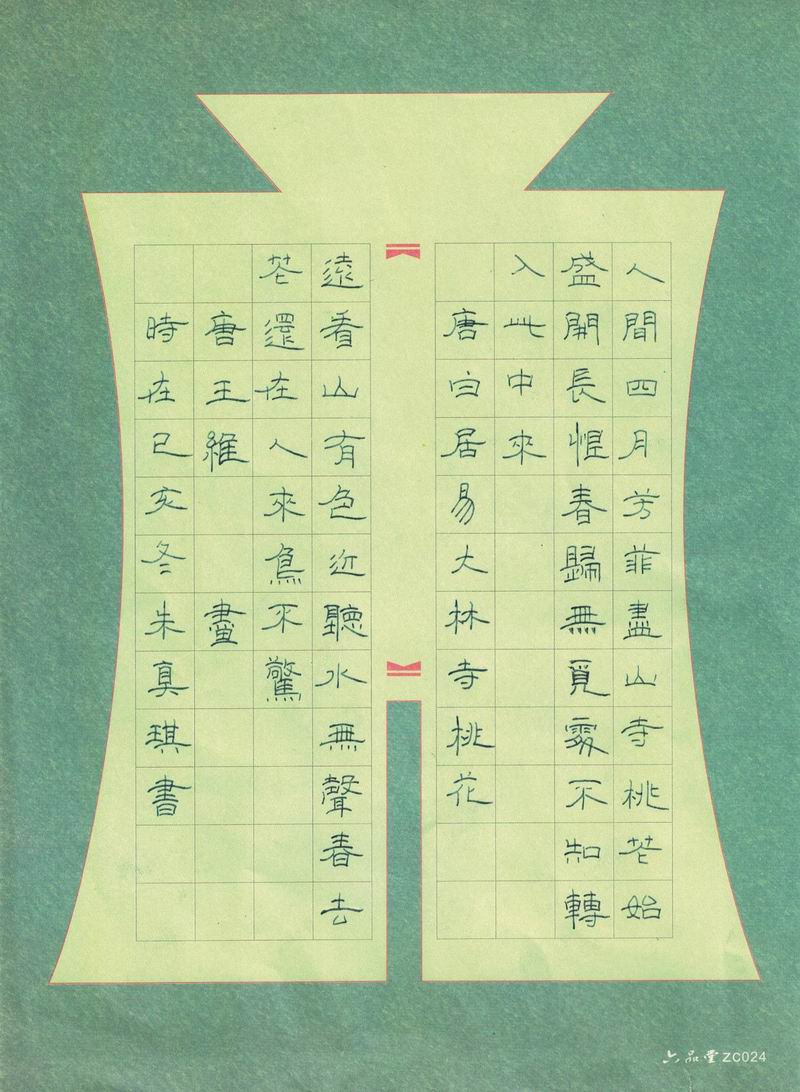 人間四月芳菲盡山寺桃芲始
盛開長恨春歸無覓處不知轉
入此中來
唐白居易大林寺桃花
遠看山有色近聽水無聲春去
芲還在人來鳥不驚
唐王維畫
時在己亥冬朱真琪書
六品堂ZC024